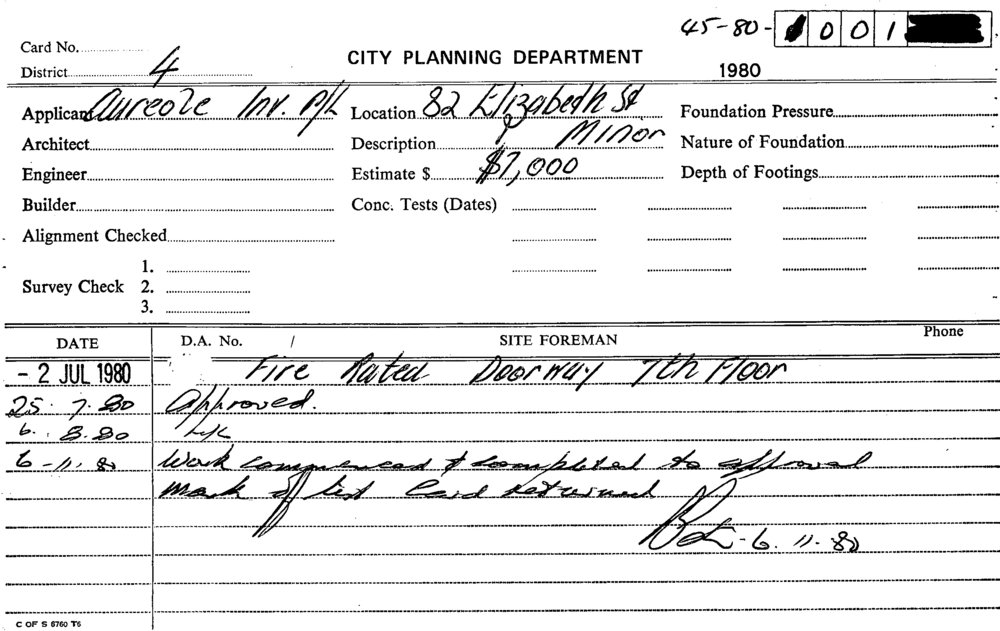 45-80- 001
Card No.
CITY PLANNING DEPARTMENT
District 4
1980
Applicant Aureole Inv. P/L Location 82 Elizabeth St Foundation Pressure
Architect Description Minor Nature of Foundation
Engineer Estimate $ $7,000 Depth of Footings
Builder Conc. Tests (Dates)
Alignment Checked
1.
Survey Check 2.
3.
DATE D.A. No. / SITE FOREMAN Phone
- 2 JUL 1980 Fire Rated Doorway 7th Floor
25. 7. 80 Approved.
6. 8. 80
6-11-80 Work commenced & completed to approval
Mark off list Card returned
6. 11. 80
C OF S 8760 T6